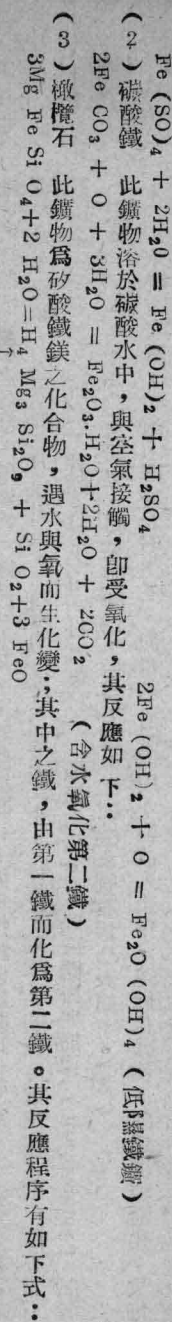 Fe (SO)₄ + 2H₂O = Fe (OH)₂ + H₂SO₄　2Fe (OH)₂ + O = Fe₂O (OH)₄ (低陽鐵鑛)
(2) 碳酸鐵　此鑛物溶於碳酸水中，與空氣接觸，卽受氧化，其反應如下：
2Fe CO₃ + O + 3H₂O = Fe₂O₃.H₂O+2H₂O + 2CO₂　(含水氧化第二鐵)
(3) 橄欖石　此鑛物爲矽酸鐵鎂之化合物，遇水與氧而生化變；其中之鐵，由第一鐵而化爲第二鐵。其反應程序有如下式：
3Mg Fe Si O₄+2 H₂O=H₄ Mg₃ Si₂O₉ + Si O₂+3 FeO